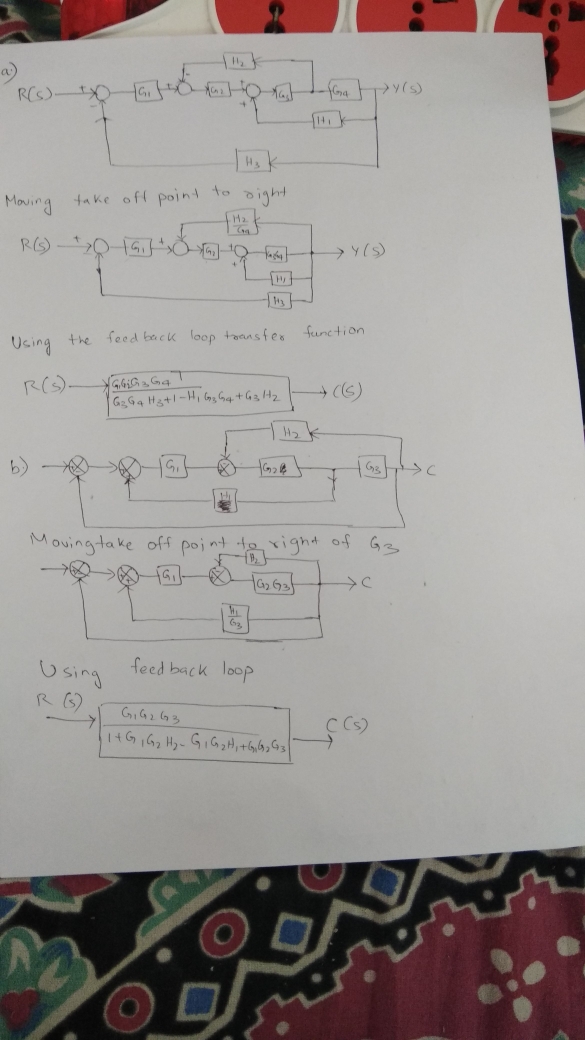 a)
H₂
R(s) + G₁ + - G₂ + + G₃ G₄ Y(s)
-
H₁
H₃
Moving take off point to right
H₂/G₄
R(s) + G₁ + G₂ + +
Y(s)
H₁
H₃
Using the feedback loop transfer function
R(s) C(s)
G₃G₄H₃+1-H₁G₃G₄+G₃H₂
H₂
b) G₁ G₂ G₃ C
H₁
Moving take off point to right of G₃
H₂
G₁ G₂G₃ C
H₁/G₃
Using feedback loop
R(s) G₁G₂G₃ C(s)
1+G₁G₂H₂-G₁G₂H₁+G₁G₂G₃